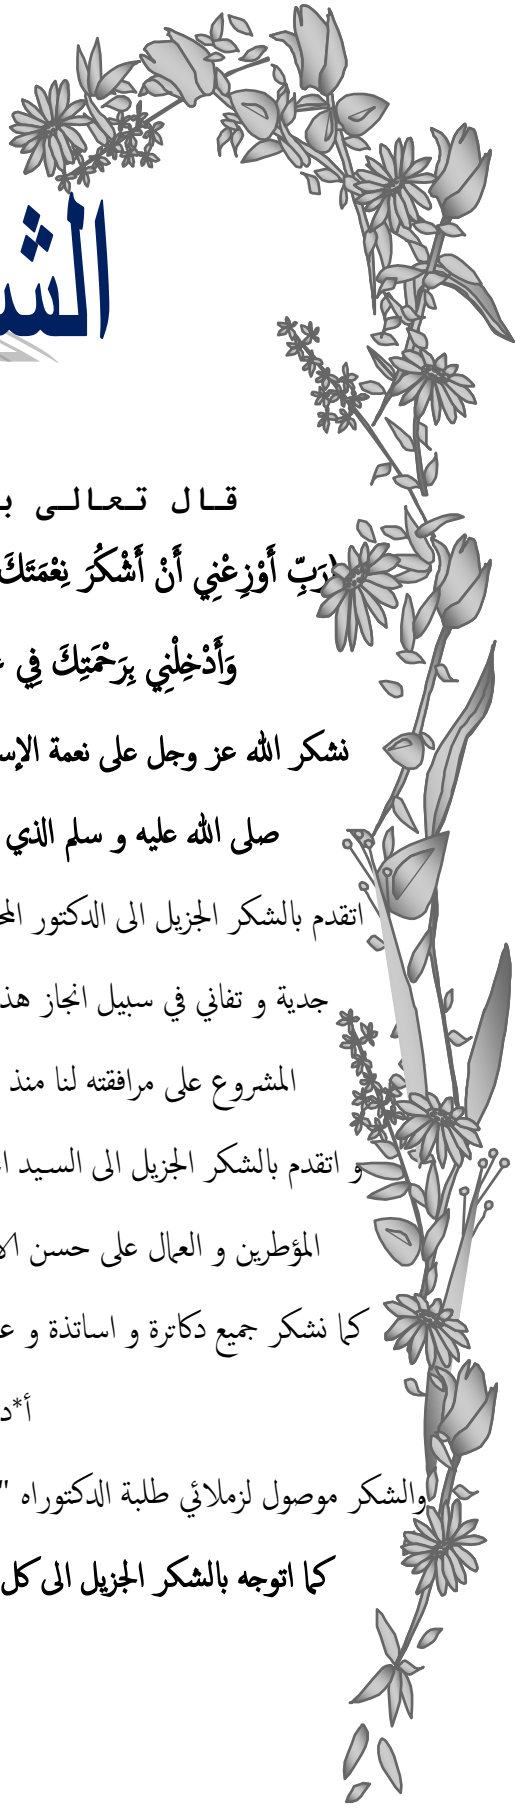 قال تعالى
رَبِّ أَوْزِعْنِي أَنْ أَشْكُرَ نِعْمَتَكَ
وَأَدْخِلْنِي بِرَحْمَتِكَ فِي
نشكر الله عز وجل على نعمة
صلى الله عليه و سلم الذي
اتقدم بالشكر الجزيل الى الدكتور
جدية و تفاني في سبيل انجاز
المشروع على مرافقته لنا منذ
و اتقدم بالشكر الجزيل الى السيد
المؤطرين و العمال على حسن
كما نشكر جميع دكاترة و اساتذة و
أ*د
والشكر موصول لزملائي طلبة الدكتوراه "
كما اتوجه بالشكر الجزيل الى كل